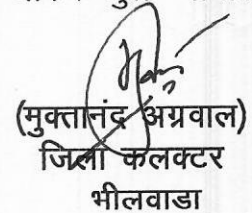 (मुक्तानंद अग्रवाल)
जिला कलक्टर
भीलवाडा